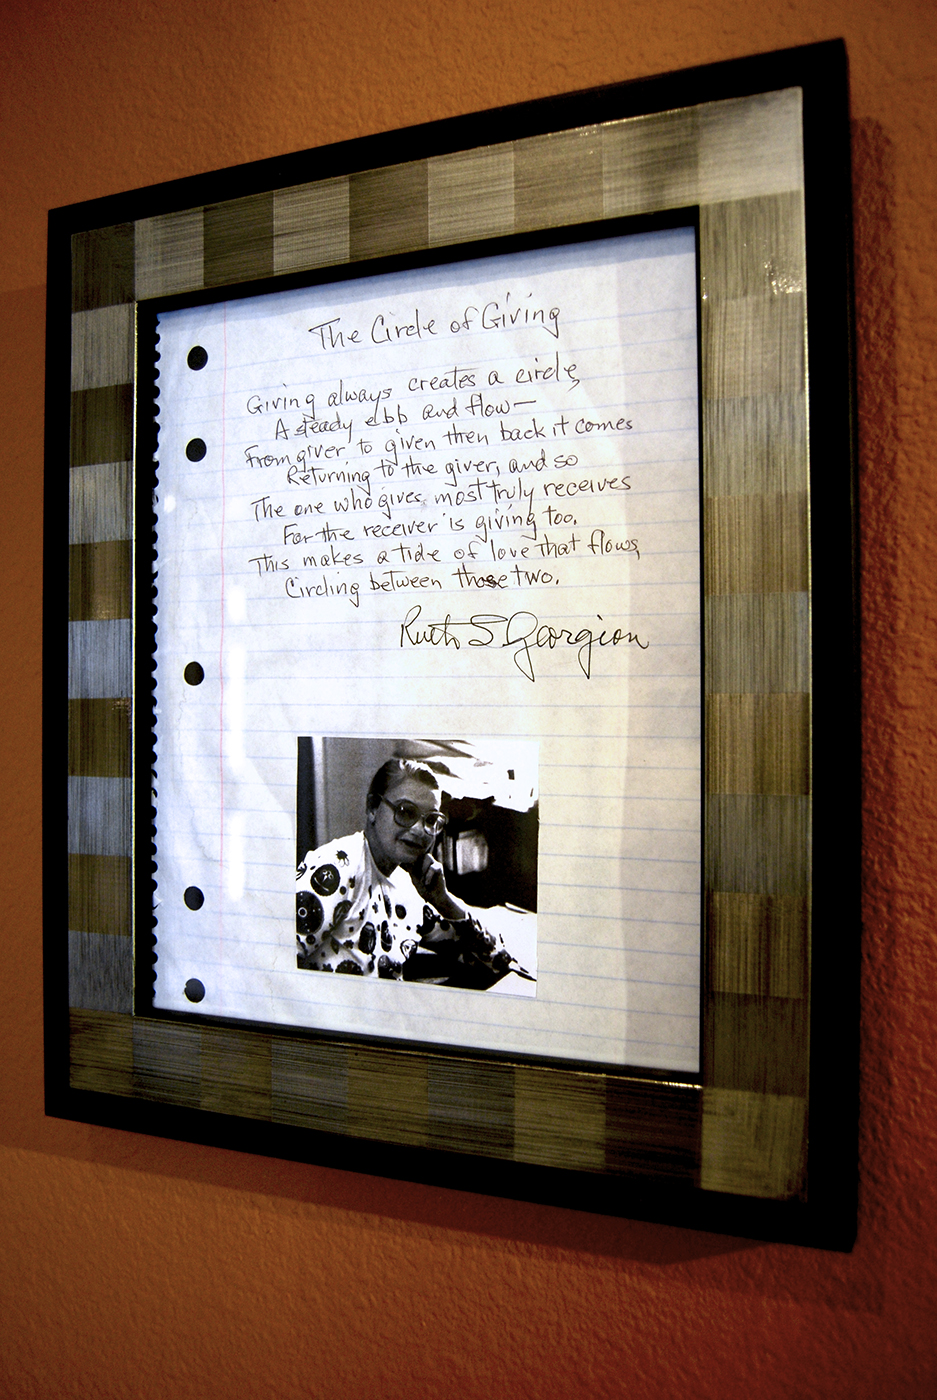 The Circle of Giving
Giving always creates a circle,
A steady ebb and flow—
From giver to given then back it comes
Returning to the giver, and so
The one who gives most truly receives
For the receiver is giving too.
This makes a tide of love that flows,
Circling between those two.
Ruth S Georgion